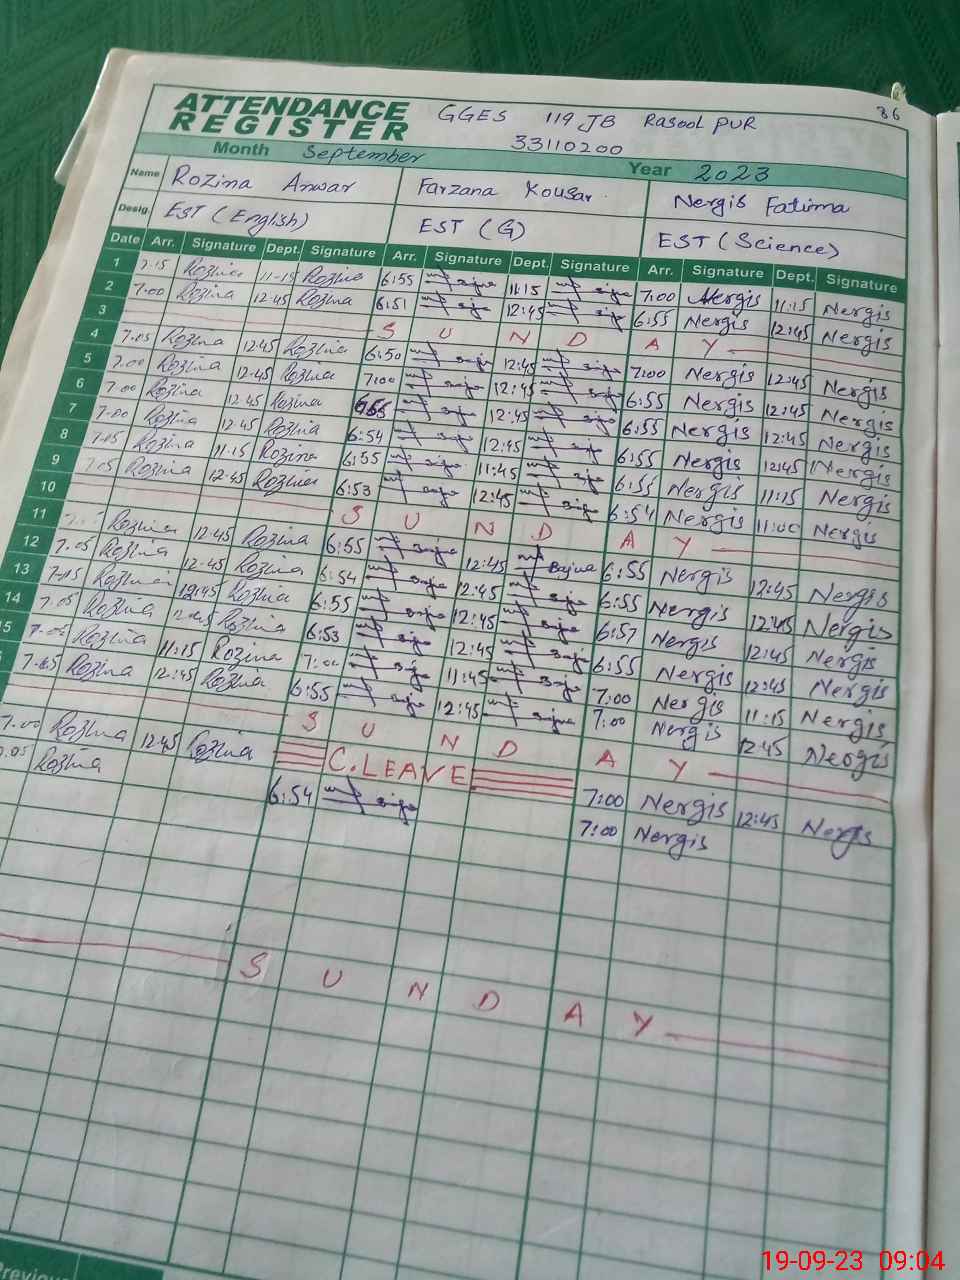 36
ATTENDANCE GGES 119 JB Rasool PUR
REGISTER 33110200
Month September Year 2023
Name Rozina Anwar Farzana Kousar. Nergis Fatima
Desig. EST (English) EST (G) EST (Science)
Date Arr. Signature Dept. Signature Arr. Signature Dept. Signature Arr. Signature Dept. Signature
1 7.15 Rozina 11-15 Rozina 6:55 11:15 7:00 Nergis 11:15 Nergis
2 7.00 Rozina 12.45 Rozina 6:51 12:45 6:55 Nergis 12:45 Nergis
3 S U N D A Y
4 7.05 Rozina 12.45 Rozina 6:50 12:45 7:00 Nergis 12:45 Nergis
5 7.00 Rozina 12.45 Rozina 7:00 12:45 6:55 Nergis 12:45 Nergis
6 7.00 Rozina 12.45 Rozina 12:45 6:55 Nergis 12:45 Nergis
7 7.00 Rozina 12.45 Rozina 6:54 12:45 6:55 Nergis 12:45 Nergis
8 7.05 Rozina 11.15 Rozina 6:55 11:45 6:55 Nergis 11:15 Nergis
9 7.05 Rozina 12.45 Rozina 6:53 12:45 6:54 Nergis 11:00 Nergis
10 S U N D A Y
11 Rozina 12.45 Rozina 6:55 12:45 6:55 Nergis 12:45 Nergis
12 7.05 Rozina 12.45 Rozina 6:54 12:45 6:55 Nergis 12:45 Nergis
13 Rozina 12.45 Rozina 6:55 12:45 6:57 Nergis 12:45 Nergis
14 7.05 Rozina 12.45 Rozina 6:53 12:45 6:55 Nergis 12:45 Nergis
15 7.05 Rozina 11:15 Rozina 7:00 11:45 7:00 Nergis 11:15 Nergis
7.05 Rozina 12:45 Rozina 6:55 12:45 7:00 Nergis 12:45 Nergis
S U N D A Y
7.00 Rozina 12.45 Rozina C.LEAVE 7:00 Nergis 12:45 Nergis
Rozina 6:54 7:00 Nergis
S U N D A Y
Previous
19-09-23 09:04